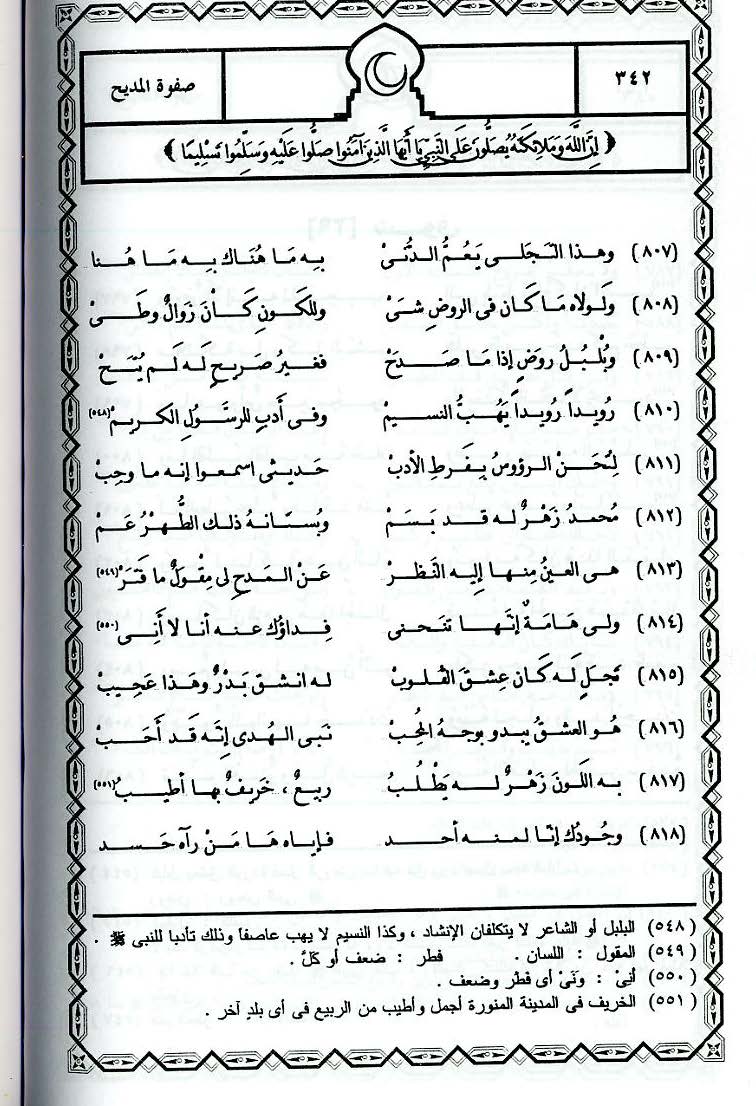 ٣٤٢
صفوة المديح
﴿ إِنَّ اللَّهَ وَمَلَائِكَتَهُ يُصَلُّونَ عَلَى النَّبِيِّ يَا أَيُّهَا الَّذِينَ آمَنُوا صَلُّوا عَلَيْهِ وَسَلِّمُوا تَسْلِيمًا ﴾
(٨٠٧) وهذا التَجَلى يَعُمُّ الدُّنَىْ بِه مَا هُنَاك بِه مَا هُنا
(٨٠٨) وَلولاه مَا كَان فى الروضِ شىَْ وللكونِ كَانَ زَوَالٌ وطَىّْ
(٨٠٩) وَبُلبُلُ روضٍ إذا مَا صَدَحْ فغيرُ صَريحٍ لَه لَم يُتَحْ
(٨١٠) رُوَيداً رُوَيداً يَهُبُّ النسيمْ وفى أدبٍ للرسُولِ الكريمْ (٥٤٨)
(٨١١) لِتُحَنَ الرؤوسُ بِفَرطِ الأدبْ حَديثى اسمعوا إنه ما وجبْ
(٨١٢) محمدُ زَهْرٌ له قد بَسَمْ وبُستَانهُ ذلك الطُّهْرُ عَمْ
(٨١٣) هى العينُ منها إليه النَظرْ عَنْ المَدحِ لى مِقْولٌ ما فَتَرْ (٥٤٩)
(٨١٤) ولى هَامَةٌ إنَّها تنحَنى فِداؤك عنه أنا لا أَنِى (٥٥٠)
(٨١٥) تَجَلٍ لَه كَان عِشقَ القلوبْ له انشق بَدْرٌ وهذا عَجيبْ
(٨١٦) هُو العشقُ يبدو بوجهِ المُحِبْ نبى الهُدى إنَه قَد أَحَبْ
(٨١٧) به اللونَ زَهْرٌ لَه يَطْلُبُ ربيعٌ ، خَريفٌ بها أطيبُ (٥٥١)
(٨١٨) وجُودُك إنّا لمنه أحد فإياه هَا مَنْ رآه حَسد
(٥٤٨) البلبل أو الشاعر لا يتكلفان الإنشاد ، وكذا النسيم لا يهب عاصفاً وذلك تأدبا للنبى ﷺ .
(٥٤٩) المقول : اللسان . فطر : ضعف أو كَلَّ .
(٥٥٠) أنِىْ : وَنَىْ أى فطر وضعف .
(٥٥١) الخريف فى المدينة المنورة أجمل وأطيب من الربيع فى أى بلدٍ آخر .